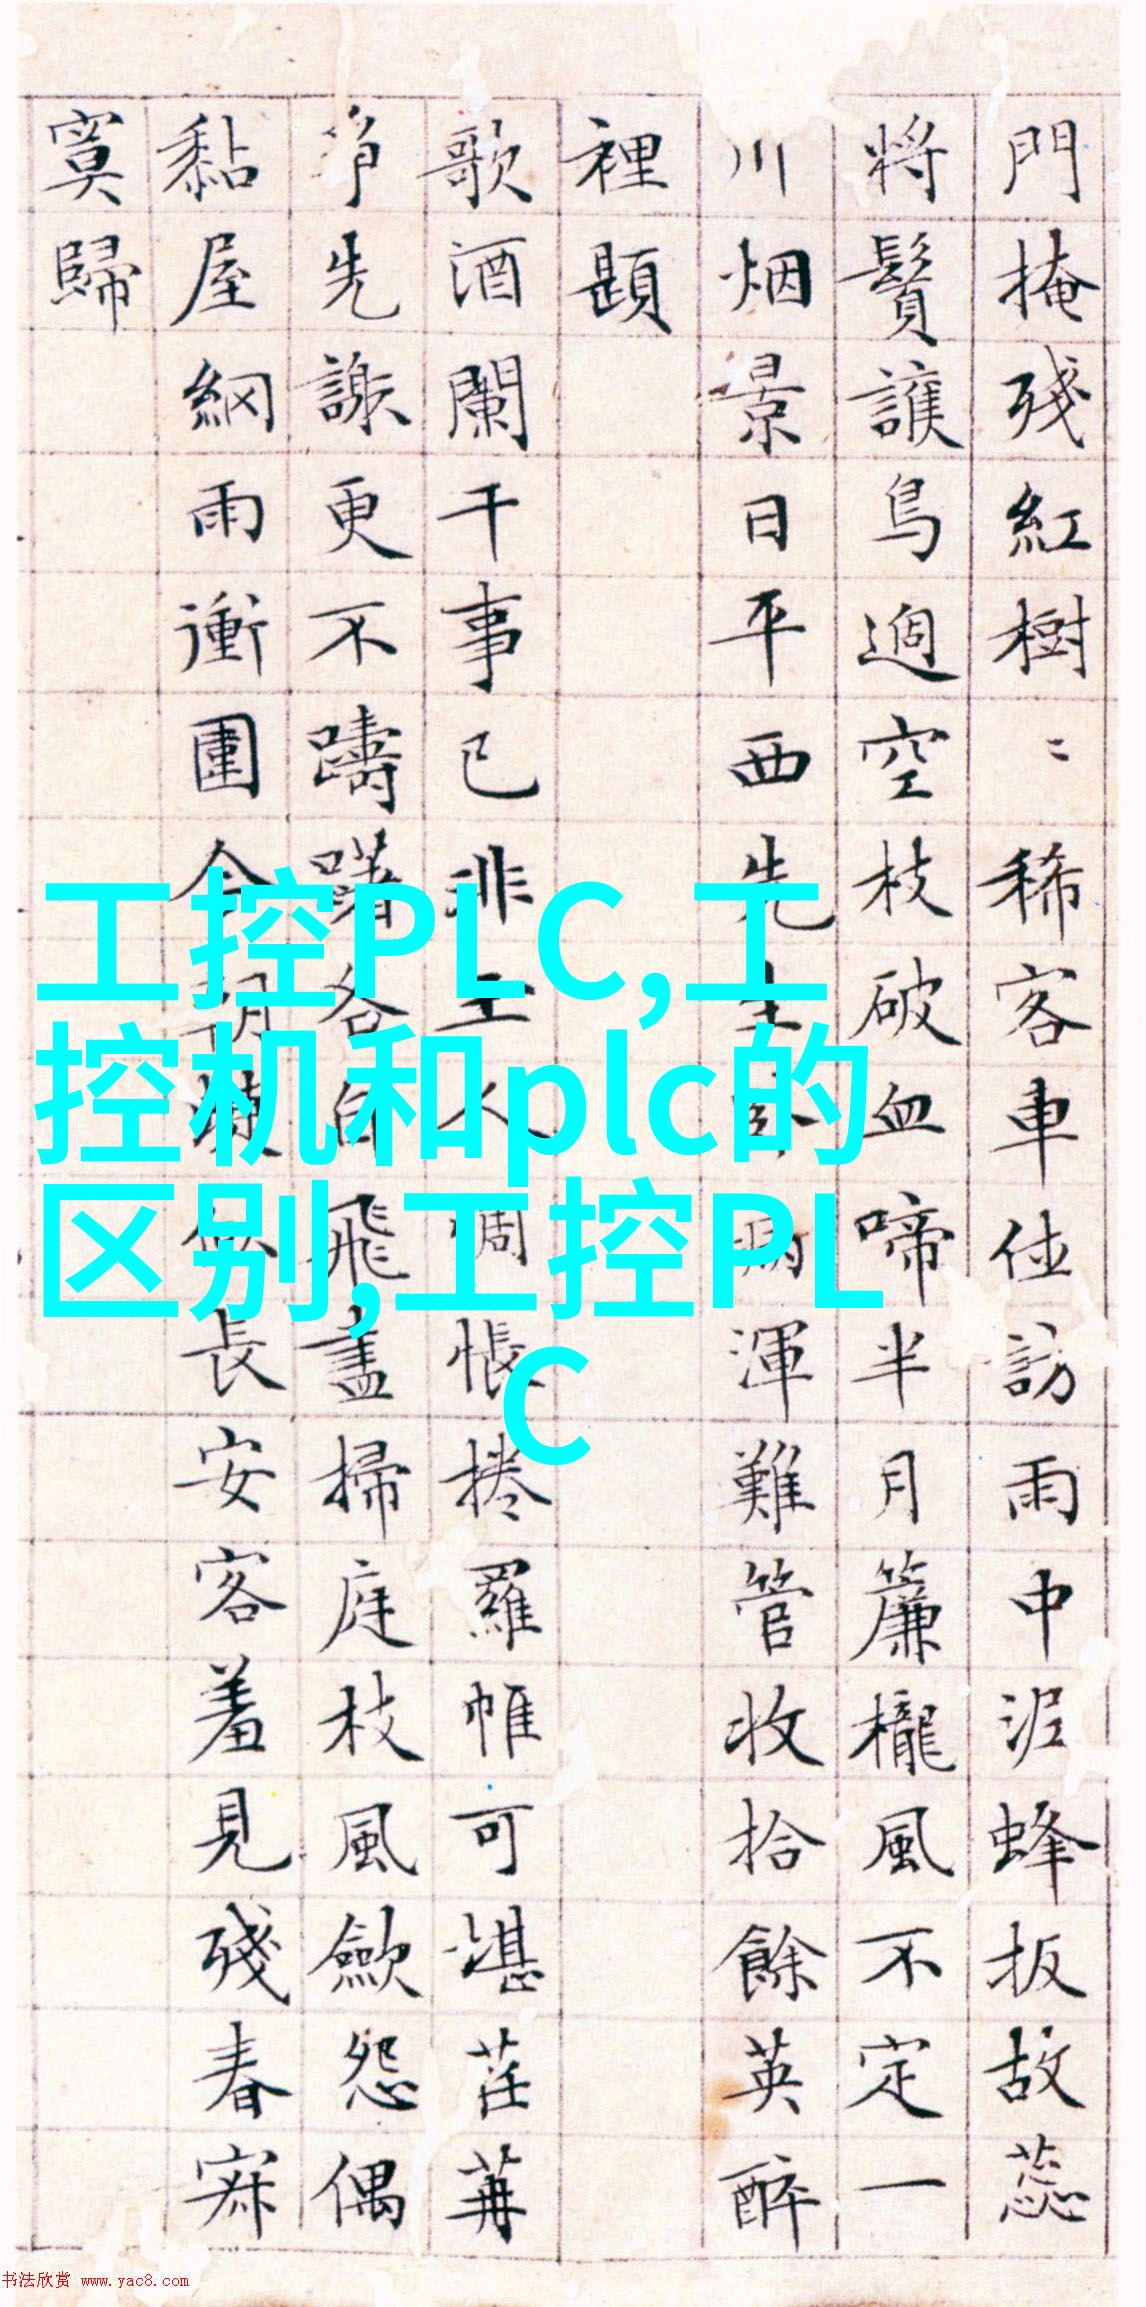 門掩殘紅樹〻稀客車位訪雨中泥蜂扳故蕊
將鬚護鳥過空枝破血啼半月簾櫳風不定一
川烟景日平西先生卧病渾難管收拾餘英醉
裡題
歌酒闌干事已非主人惆悵捲羅帷可堪荏苒
爭先謝更不躊躇各自飛盡掃庭枝風歛怨偶
黏屋網雨衝圍今朝無長安客羞見殘春寂
寞歸
工控PLC,工
控机和plc的
区别,工控PL
C
书法欣赏 www.yac8.com